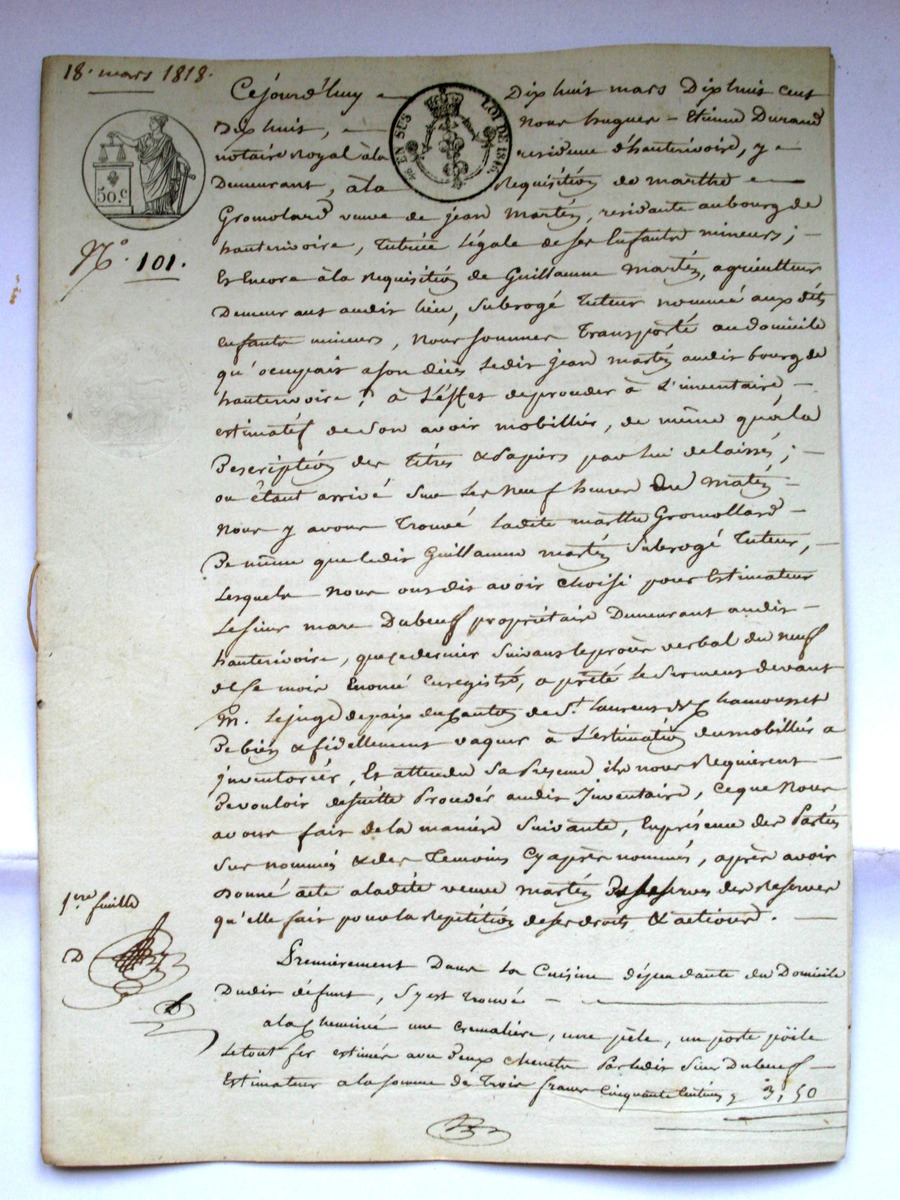 18. mars 1818.
EN SUS LOI DE 1816.
50.c
N.° 101.
Cejourd'huy Dix huit mars Dix huit cent
Dix huit, Nous hugues Etienne Durand
notaire Royal à la residence d'hauterivoire, y
Demeurant, à la Requisition de marthe
Gromolard veuve de jean Martin, residante au bourg de
hauterivoire, tutrice légale de ses Enfants mineurs;
Et Encore à la Requisition de Guillaume Martin, agriculteur
Demeurant audit lieu, Subrogé tuteur nommé aux dits
Enfants mineurs, Nous sommes Transporté au domicile
qu'ocupait a son décès ledit jean martin audit bourg de
hauterivoire; à L'effet de proceder à L'inventaire
estimatif de Son avoir mobillier, de même qu'à la
Description des titres & Papiers par lui delaissés;
ou étant arrivé Sur Les Neuf heures du matin
Nous y avons Trouvé ladite marthe Gromollard
De même que ledit Guillaume martin Subrogé tuteur,
Lesquels Nous ont dit avoir choisi pour Estimateur
Le sieur marc Dubeuf propriétaire Demeurant audit
hauterivoire, que ce dernier Suivant le procès verbal du neuf
de ce mois Enoncé Enregistré, a prêté Le Serment devant
M. Le juge de paix du Canton de St. Laurent de Chamousset
De bien & fidellement vaquer à L'estimation du mobillier a
jnventorier, Et attendu Sa Presence ils nous Requierent
De vouloir de suitte Proceder audit Jnventaire, Ce que Nous
avons fait de la manière Suivante, En présence des Parties
Sus nommés & des Temoins Cy après nommés, après avoir
Donné acte a ladite veuve martin des Reserves
qu'elle fait pour la Repetition de ses droits & actions.
1ere feuille
D
Premièrement Dans La Cuisine dépendante du Domicile
Dudit défunt, S'y est trouvé
a la Cheminé une Cremalière, une pèle, un porte poële
Le tout fer estimés avec Deux chenets Par ledit Sieur Dubeuf
Estimateur a la somme de Trois francs Cinquante Centimes 3,50